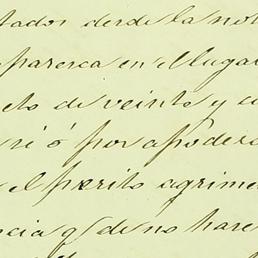 tados desde la not
parezca en el lugar
eto de veinte y c
si ó por apodera
el perito agrime
ncia q( de no hacer